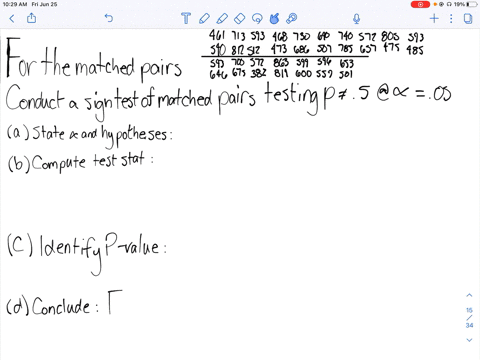 10:29 AM Fri Jun 25
19%
461 713 593 468 730 690 740 572 805 593
590 812 512 473 686 507 785 657 475 485
593 700 572 863 599 596 653
646 675 382 819 600 559 501
For the matched pairs
Conduct a sign test of matched pairs testing p ≠ .5 @ α = .05
(a) State α and hypotheses:
(b) Compute test stat :
(C) Identify P-value :
(d) Conclude :
15
/
34